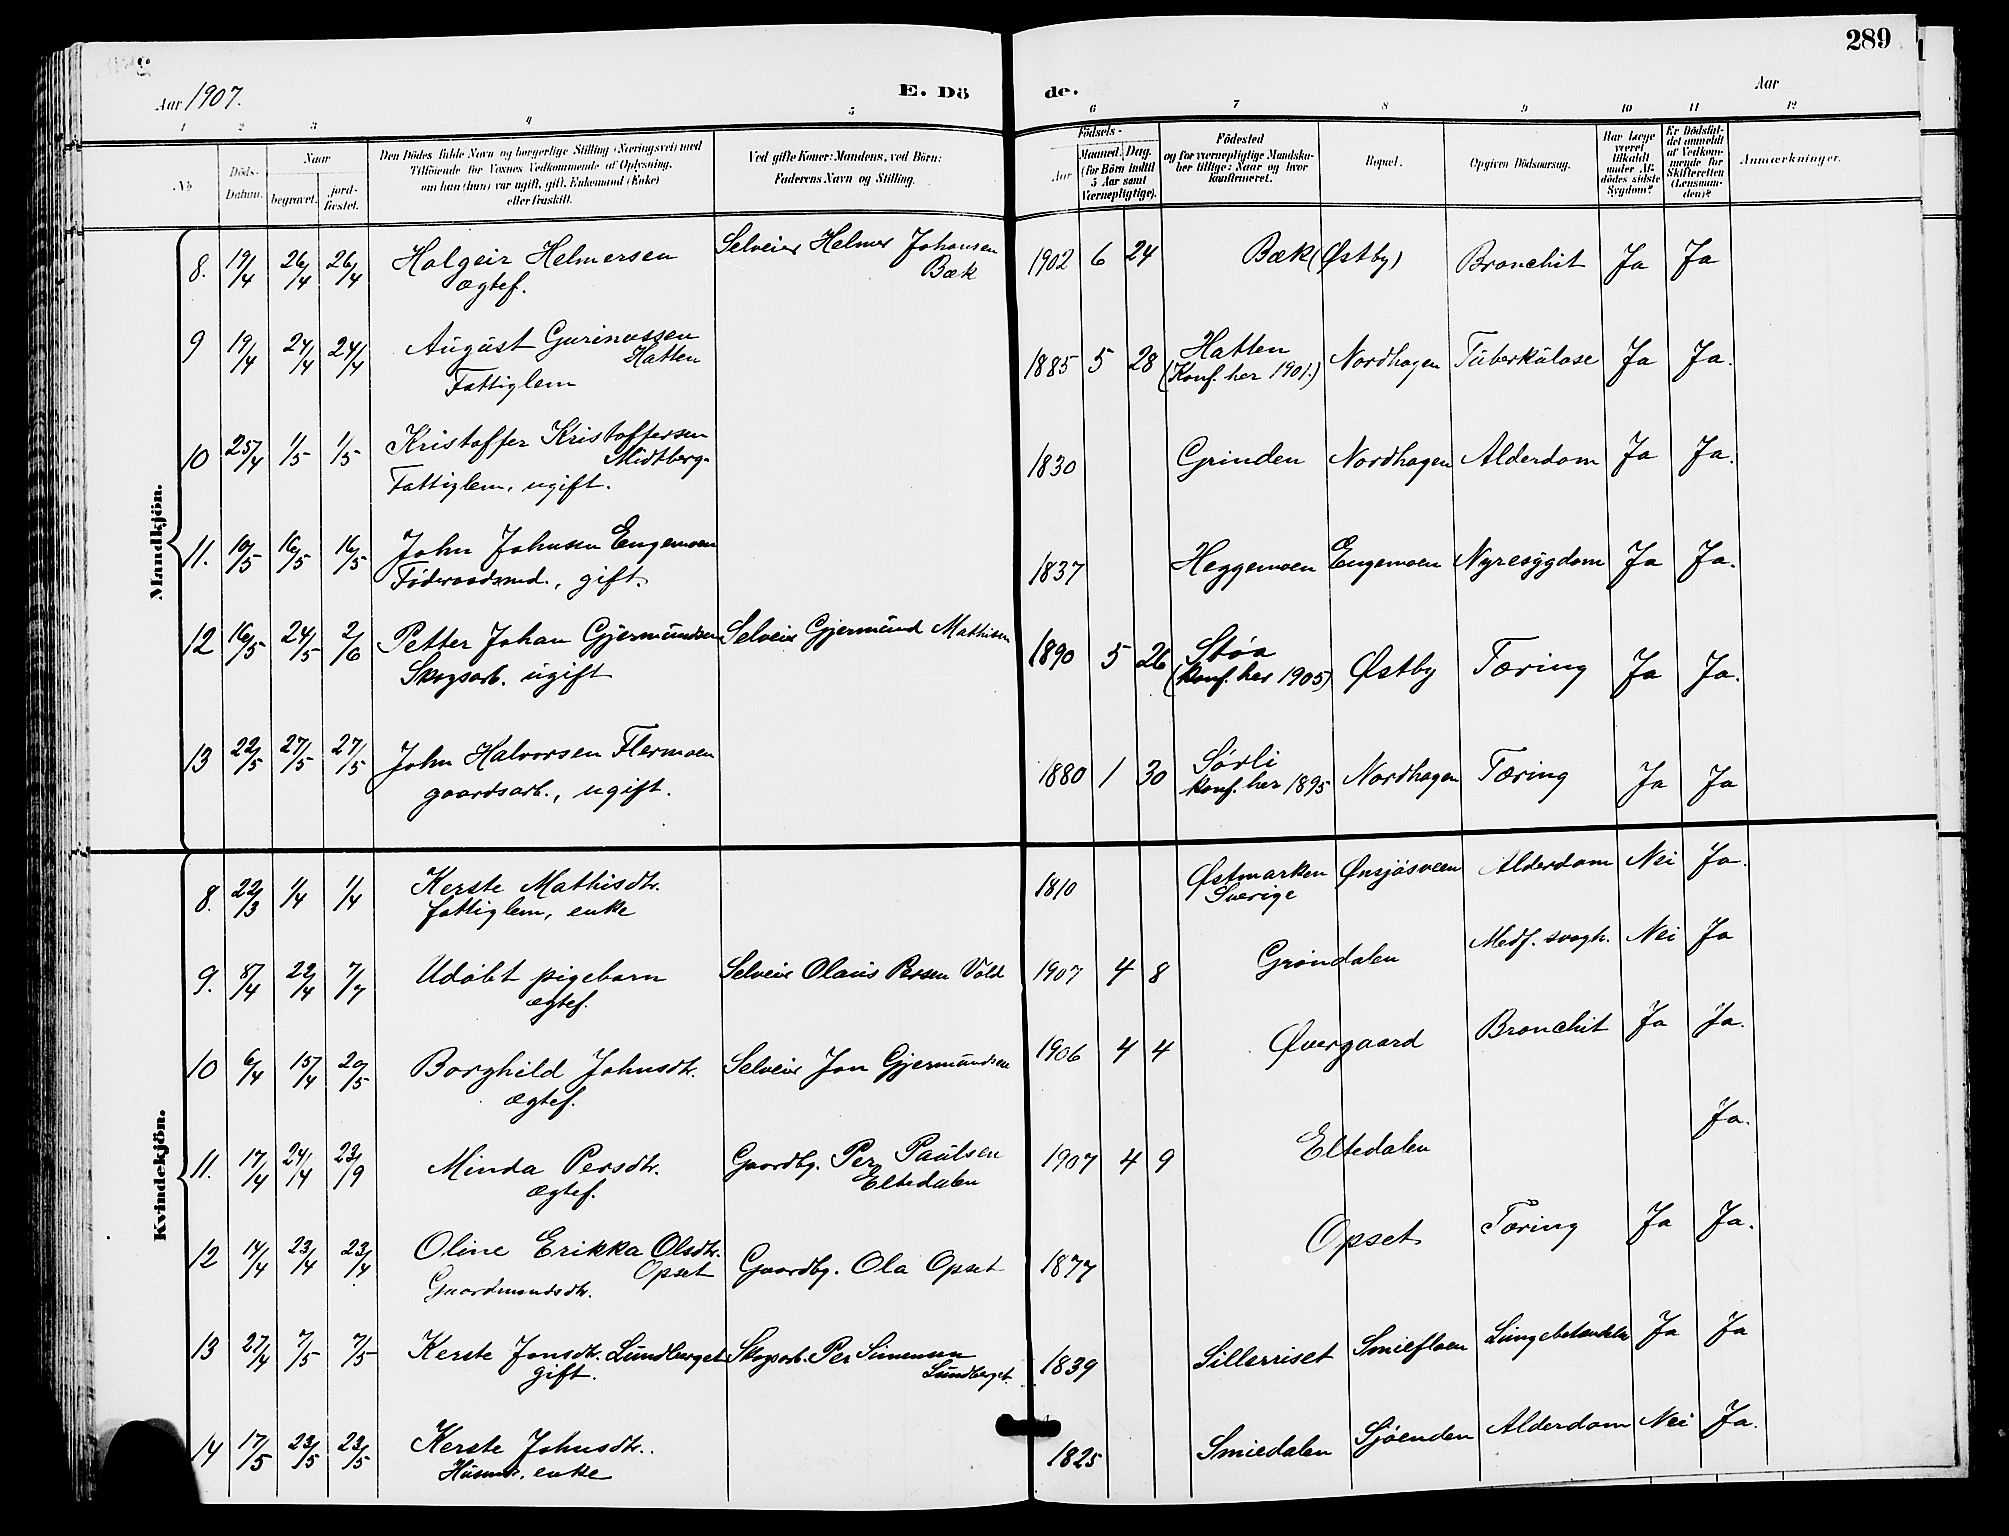 289
Aar 1907.
E. Dö
de.
Aar
1 2 3 4 5 6 7 8 9 10 11 12
№
Döds-
Datum.
Naar
begravet.
jord-
fæstet.
Den Dödes fulde Navn og borgerlige Stilling (Næringsvei) med
Tilföiende for Voxnes Vedkommende af Oplysning,
om han (hun) var ugift, gift, Enkemand (Enke)
eller fraskilt.
Ved gifte Koner: Mandens, ved Börn:
Faderens Navn og Stilling.
Födsels-
Aar
Maaned. Dag.
(for Börn indtil
5 Aar samt
Værnepligtige).
Födested
og for værnepligtige Mandsku-
ber tillige: Naar og hvor
konfirmeret.
Bopæl.
Opgiven Dödsaarsag.
Har læge
været
tilkaldt
under Af-
dödes sidste
Sygdom?
Er Dödsfal-
det anmeldt
af Vedkom-
mende for
Skifteretten
(Lensman-
den)?
Anmærkninger.
Mandkjön.
8. 19/4 26/4 26/4 Halgeir Helmersen Selveier Helmer Johansen 1902 6 24 Bæk (Østby) Bronchit Ja Ja
ægtef. Bæk
9 19/4 24/4 24/4 August Gurinussen 1885 5 28 Hatten Nordhagen Tuberkulose Ja Ja.
Hatten (Konf. her 1901.)
Fattiglem
10 25/4 1/5 1/5 Kristoffer Kristoffersen 1830 Grinden Nordhagen Alderdom Ja Ja.
Midtberg.
Fattiglem, ugift.
11. 10/5 16/5 16/5 John Johnsen Engemoen 1837 Heggemoen Engemoen Nyresygdom Ja Ja.
Föderaadsmd., gift.
12 16/5 24/5 2/6 Petter Johan Gjermundsen Selveier Gjermund Mathisen 1890 5 26 Støa Østby Tæring Ja Ja.
Skogsarb. ugift (Konf. her 1905)
13 22/5 27/5 27/5 John Halvorsen Flermoen 1880 1 30 Sørli Nordhagen Tæring Ja Ja
gaardsarb., ugift. konf. her 1895
Kvindekjön.
8. 22/3 1/4 1/4 Kerste Mathisdtr. 1810 Østmarken Ønsjøsveen Alderdom Nei Ja.
fattiglem, enke Sverige
9. 8/4 22/4 7/7 Udøbt pigebarn Selveier Olaus Persen Vold 1907 4 8 Grøndalen Medf. svagh. Nei Ja
ægtef.
10 6/4 15/4 20/5 Borghild Johnsdtr. Selveier Jon Gjermundsen 1906 4 4 Øvergaard Bronchit Ja Ja.
ægtef.
11. 17/4 24/4 23/9 Minda Persdtr. Gaardbg. Per Paulsen 1907 4 9 Eltedalen Ja.
ægtef. Eltedalen
12 14/4 23/4 23/4 Oline Erikka Olsdtr. Gaardbg. Ola Opset 1877 Opset Tæring Ja Ja.
Opset
Gaardmandsdtr.
13 27/4 7/5 7/5 Kerste Jonsdtr. Lundberget Skogsarb. Per Simensen 1839 Sillerriset Smiefloen Lungebetændelse Ja Ja
gift. Lundberget.
14 17/5 23/5 23/5 Kerste Johnsdtr. 1825 Smiedalen Sjøenden Alderdom Nei Ja.
Husmr. enke